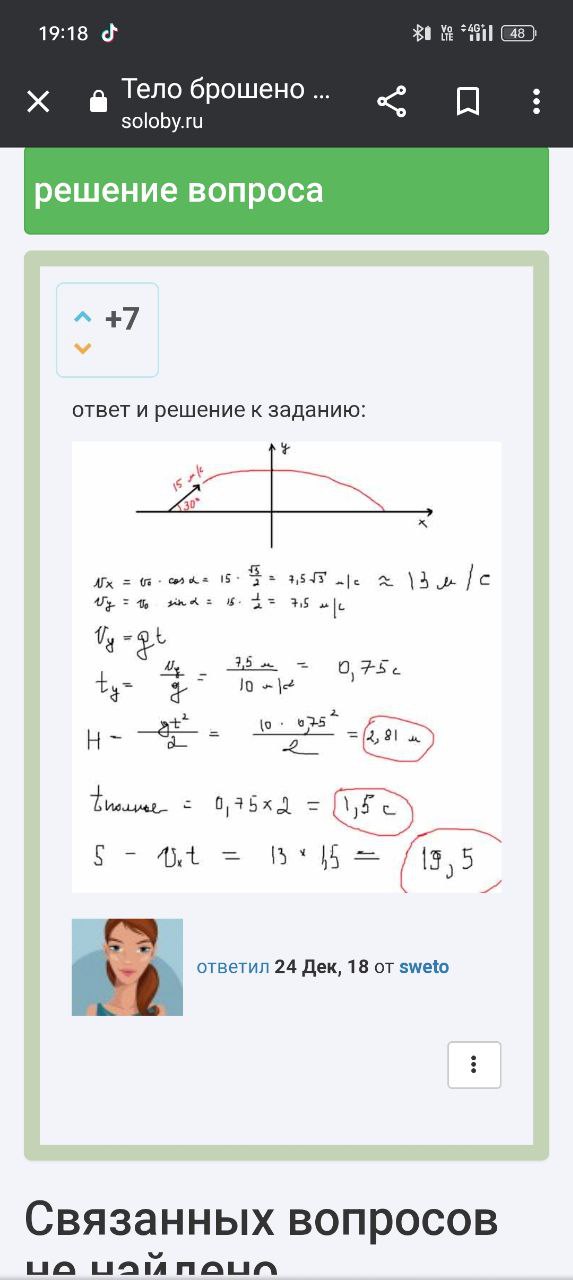 19:18
Vo LTE 4G+ 48
Тело брошено ...
soloby.ru
решение вопроса
+7
ответ и решение к заданию:
y
15 м/с
30°
x
Vx = v₀ · cos α = 15 · √3/2 = 7,5√3 м/с ≈ 13 м/с
Vy = v₀ sin α = 15 · 1/2 = 7,5 м/с
Vy = gt
ty = Vy/g = 7,5 м/10 м/с² = 0,75 с
H - gt²/2 = 10 · 0,75²/2 = 2,81 м
tполное = 0,75×2 = 1,5 с
S - Vxt = 13 × 1,5 = 19,5
ответил 24 Дек, 18 от sweto
Связанных вопросов
не найдено